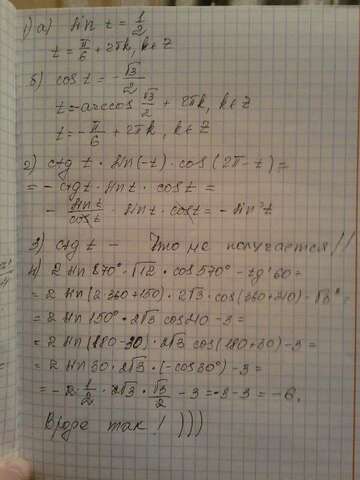 1) а) sin t = 1/2
t = π/6 + 2πk, k∈Z
б) cos t = -√3/2
t=-arccos √3/2 + 2πk, k∈Z
t=-π/6 + 2πk, k∈Z
2) ctg t · sin(-t) · cos(2π-t) =
= - ctg t · sin t · cos t =
- sin t/cos t · sin t · cos t = - sin²t
3) ctg t - Что не получается//
4) 2 sin 870° · √12 · cos 570° - tg² 60 =
= 2 sin(2·360+150) · 2√3 · cos(360+210) - √3² =
= 2 sin 150° · 2√3 cos 210 - 3 =
= 2 sin(180-30) · 2√3 cos(180+30) - 3 =
= 2 sin 30 · 2√3 · (-cos 30°) - 3 =
= - 2 · 1/2 · 2√3 · √3/2 - 3 = -3-3 = -6.
Вроде так! )))